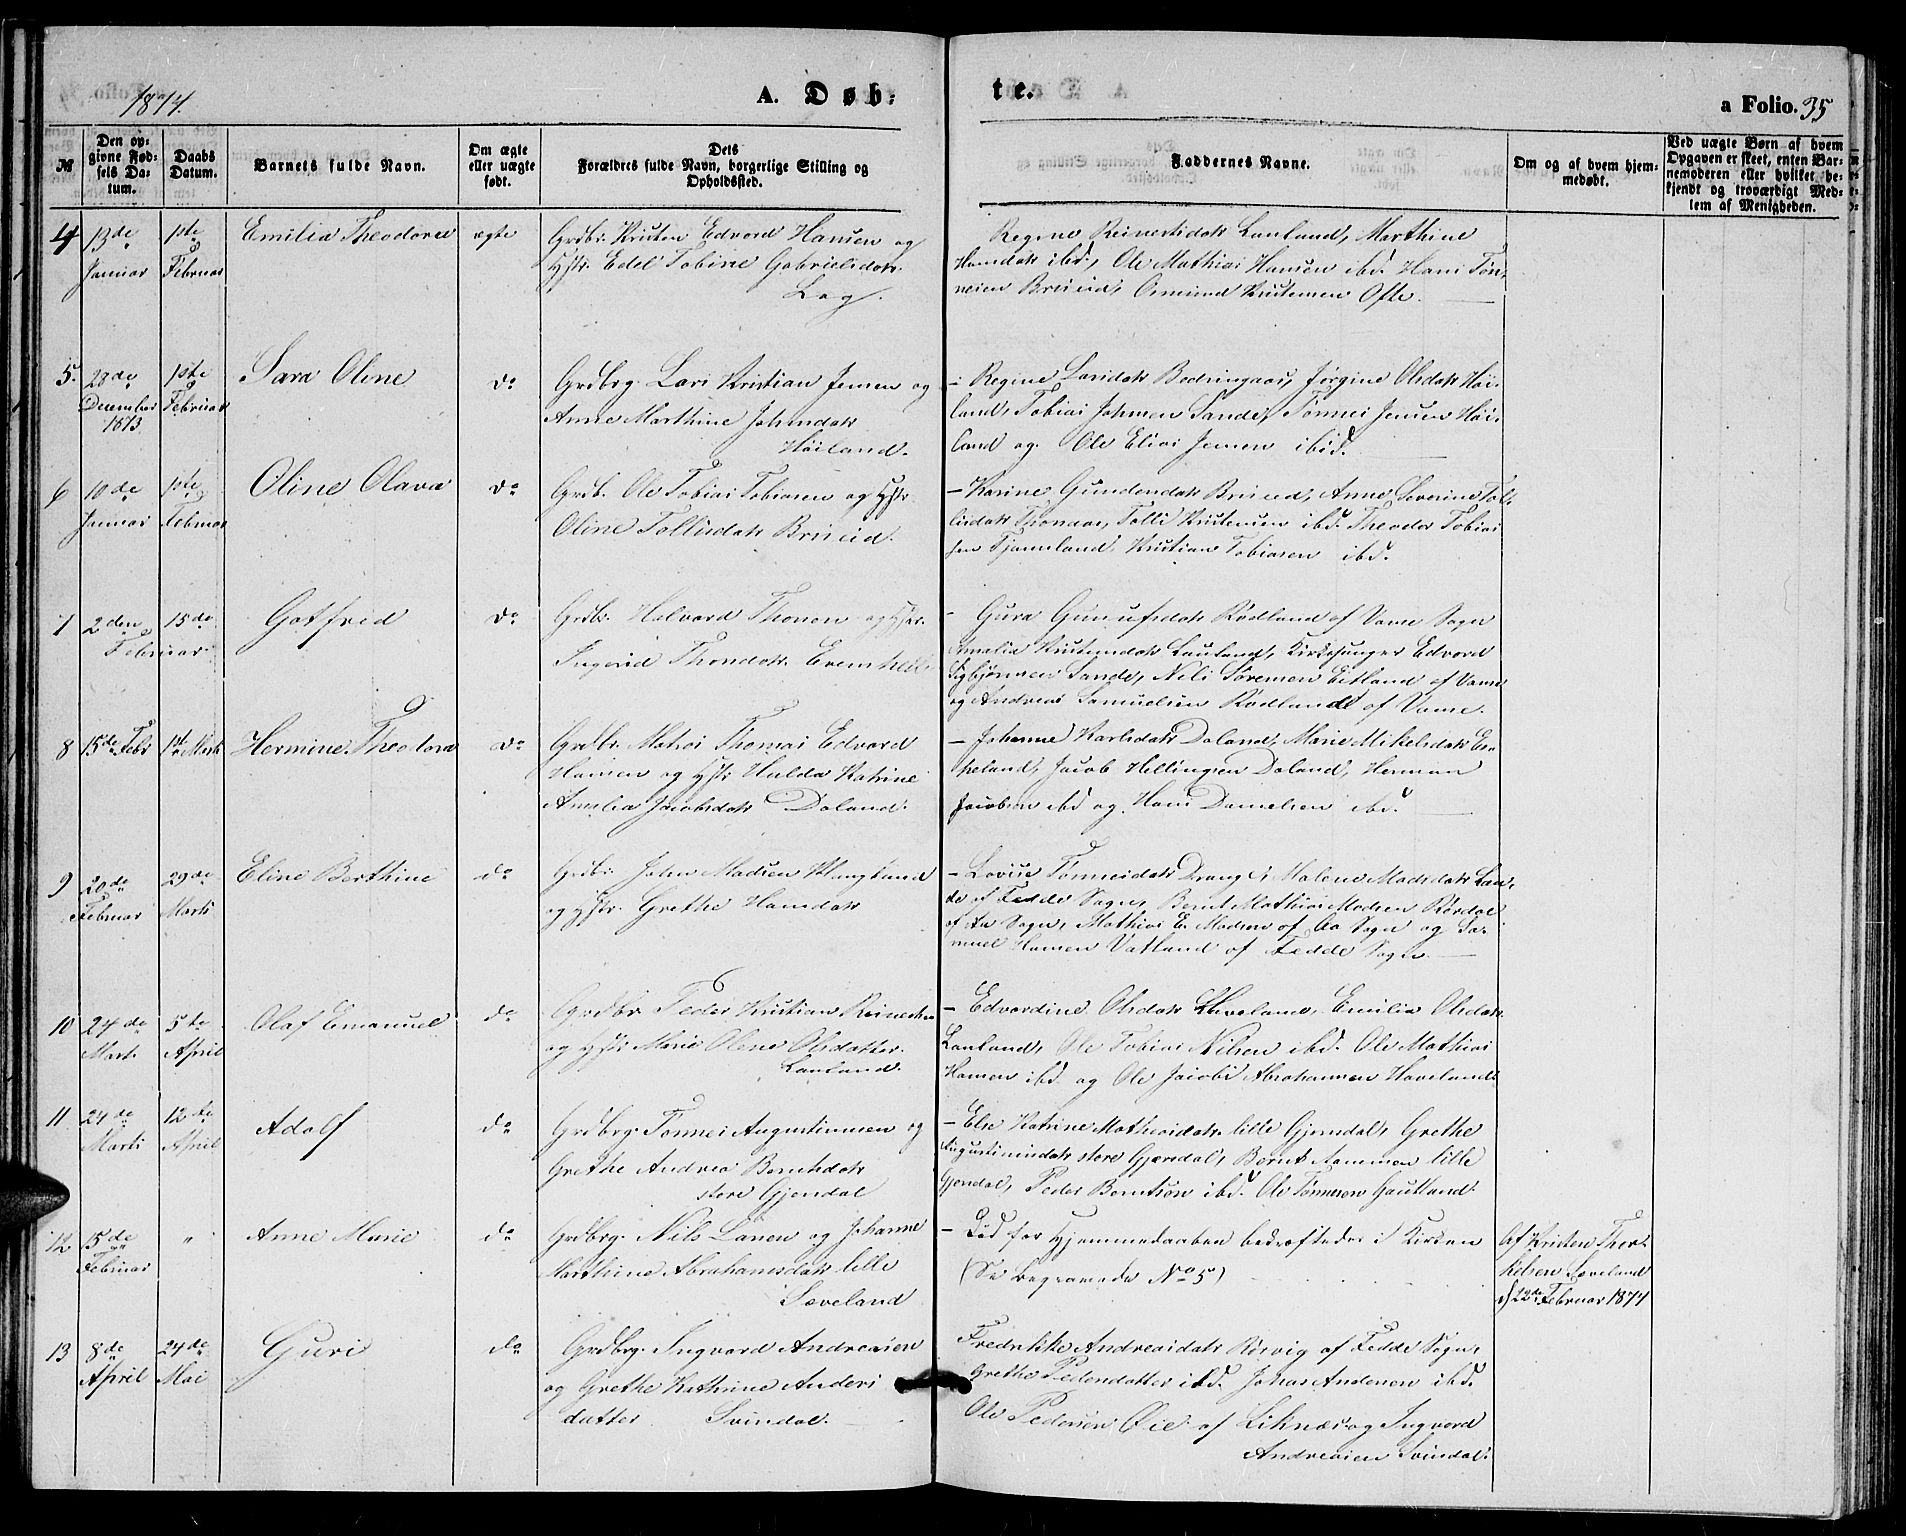 1874.
A. Døb:
te.
a Folio. 35
№
Den op-
givne Fød-
sels Da-
tum.
Daabs
Datum.
Barnets fulde Navn.
Om ægte
eller uægte
født.
Dets
Forældres fulde Navn, borgerlige Stilling og
Opholdssted.
Faddernes Navne.
Om og af hvem hjem-
medøbt.
Ved uægte Børn af hvem
Opgaven er skeet, enten Bar-
nemoderen eller hvilket be-
kjendt og troværdigt Med-
lem af Menigheden.
4 13de Januar
1ste Februar
Emilia Theodore
ægte
Grdbr. Kristen Edvard Hansen og
Hstr. Edel Tobine Gabrielsdatr.
Log.
Regine Reinertsdatr Lauland, Marthine
Hansdatr ibd., Ole Mathias Hansen ibd. Hans Tøn-
nesen Briseid, Osmund Kristensen Ofte.
5. 28de December 1873
1ste Februar
Sara Oline
do
Grdbrg. Lars Kristian Jensen og
Anne Marthine Johnsdatr
Høiland.
- Regine Larsdatr Bedringaas, Jørgine Olsdatr Høi-
land, Tobias Johnsen Sande, Tønnes Jensen Høi-
land og Ole Elias Jensen ibid.
6 10de Januar
1ste Februar
Oline Olava
do
Grdb. Ole Tobias Tobiasen og Hstr
Oline Tollisdatr Briseid.
- Karine Gundersdatr Briseid, Anne Severine Tol-
lisdatr Thonaas, Tolli Kristensen ibd. Theodor Tobias
sen Tjømland, Kristian Tobiasen ibd.
7 2den Februar
15de
Gotfred
do
Grdbr. Halvord Thorsen og Hstr.
Ingerid Thorsdatr. Evenshell
- Gura Gunufsdatr Rødland af Vanse Sogn
Amalia Kristensdatr Lauland, Kirkesanger Edvard
Sigbjørnsen Sande, Nils Sørensen Eitland af Vanse
og Andreas Samuelsen Rødland af Vanse.
8 15de Febr
1ste Marts
Hermine Theodora
do
Grdbr. Matias Thomas Edvard
Hansen og Hstr Hulda Katrine
Amalia Jacobsdatr Daland.
- Johanne Karlsdatr Daland, Marie Mikelsdatr Es-
peland, Jacob Hellingsen Daland, Herman
Jacobsen ibd og Hans Danielsen ibd.
9 20de Februar
29de Marts
Eline Berthine
do
Grdbr. John Madsen Klungland
og Hstr. Grethe Hansdatr
- Lovise Tønnesdatr Drange, Malene Madsdatr Lan-
de af Fedde Sogn, Bernt Mathias Madsen Rørdal
af Aa Sogn, Mathias E. Madsen af Aa Sogn og Sa-
muel Hansen Vatland af Fedde Sogn.
10 24de Marts
5te April
Olaf Emanuel
do
Grdbr Peder Kristian Reinertsen
og Hstr Marie Olene Olsdatter.
Lauland.
- Edvardine Olsdatr Haveland, Emilia Olsdatr
Lauland, Ole Tobias Nilsen ibd. Ole Mathias
Hansen ibd og Ole Jacobi Abrahamsen Haveland.
11 24de Marts
12te April
Adolf
do
Grdbrg. Tønnes Augustinusen og
Grethe Andrea Berntsdatr
store Gjerdal
- Else Katrine Mathiasdatr. lille Gjerdal, Grethe
Augustinusdatr store Gjærdal, Bernt Aamonsen lille
Gjerdal, Peder Berntsøn ibd. Ole Tønnesen Gautland.
12 15de Februar
"
Anne Marie
do
Grdbrg. Nils Larsen og Johanne
Marthine Abrahamsdatr lille
Sæveland
- Død før Hjemmedaaben bekræftedes i Kirken
(Se Begravede No 5)
Af Kristen Thor-
kelsen Sæveland
d) 22de Februar 1874
13 8de April
24de Mai
Guri
do
Grdbrg. Ingvard Andreasen
og Grethe Kathrine Anders
datter Svindal.
Fredrikke Andreasdatr Røsvig af Fedde Sogn,
Grethe Pedersdatter ibd. Johan Andersen ibd.
Ole Pedersen Øie af Liknes og Ingvard
Andreasen Svindal.